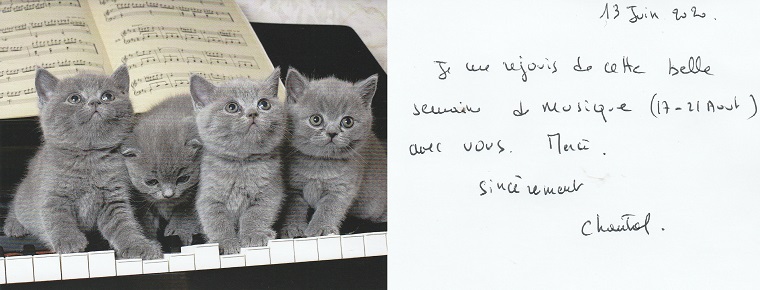 13 Juin 2020.
Je me rejouis de cette belle
semaine de musique (17-21 Aout)
avec vous. Merci.
Sincèrement
Chantal.